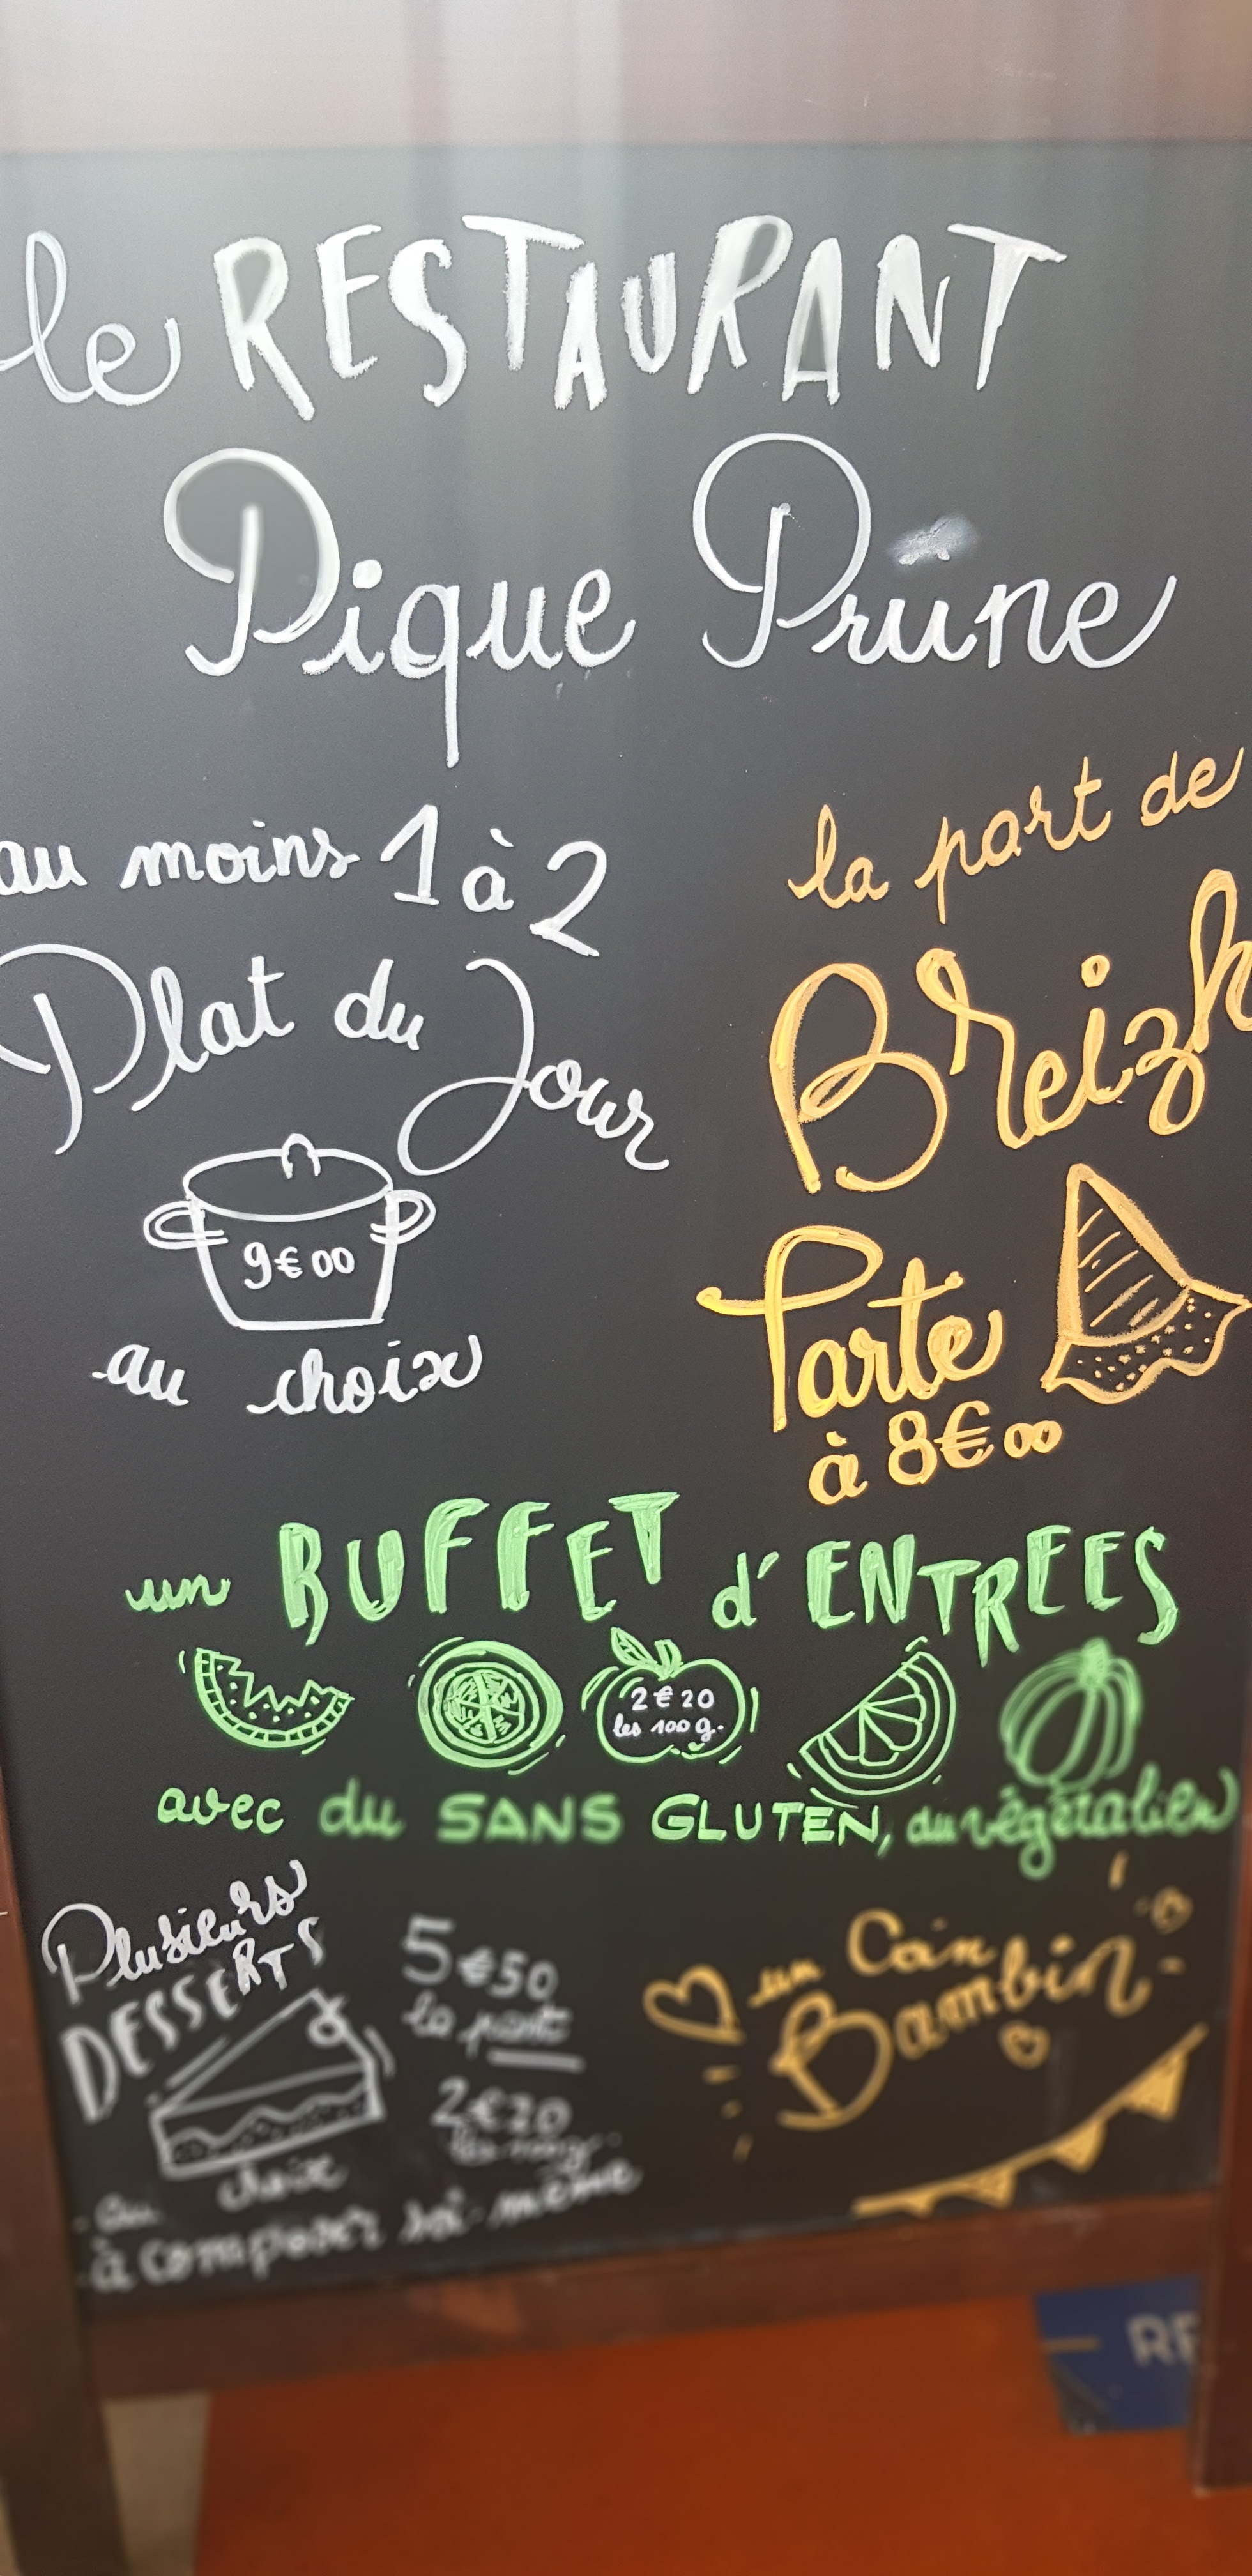 le RESTAURANT
Pique Prune
au moins 1 à 2
Plat du Jour
9€00
au choix
la part de
Breizh
Tarte
à 8€00
un BUFFET d'ENTREES
2€20
les 100g.
avec du SANS GLUTEN, du végétalien
Plusieurs
DESSERTS
5€50
la part
2€20
les 100g.
- au choix
- à composer soi-même
un Coin
Bambin
RE